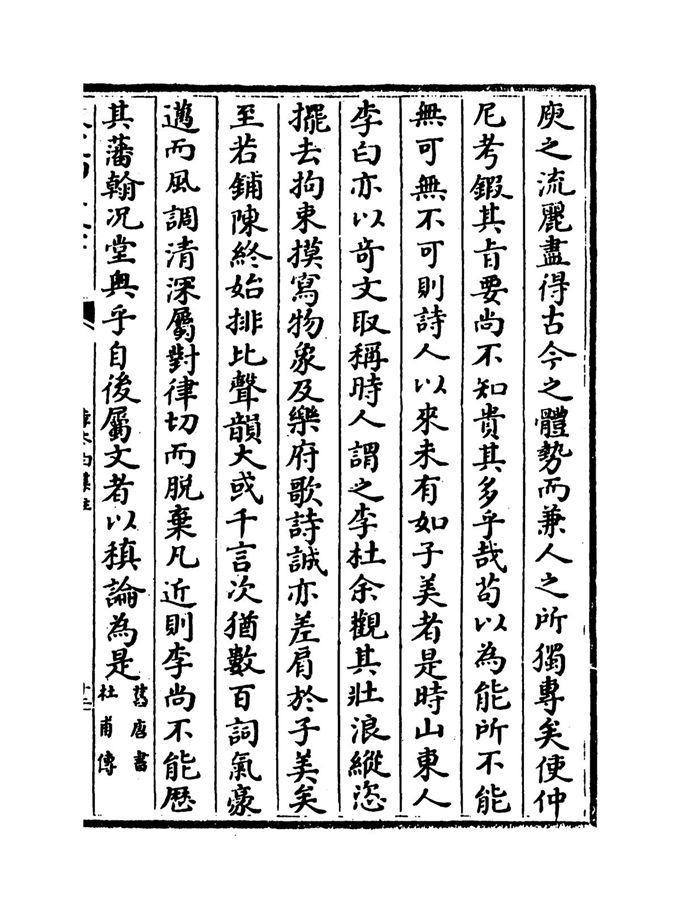 庾之流麗盡得古今之體勢而兼人之所獨專矣使仲
尼考鍜其㫖要尚不知貴其多乎哉苟以為能所不能
無可無不可則詩人以來未有如子美者是時山東人
李白亦以竒文取稱時人謂之李杜余觀其壯浪縱恣
擺去拘束摸寫物象及樂府歌詩誠亦差肩於子美矣
至若鋪陳終始排比聲韻大或千言次猶數百詞氣豪
邁而風調清深屬對律切而脱棄凡近則李尚不能歴
其藩翰况堂奥乎自後屬文者以稹論為是
舊唐書
杜甫傳
李太白集註
十二